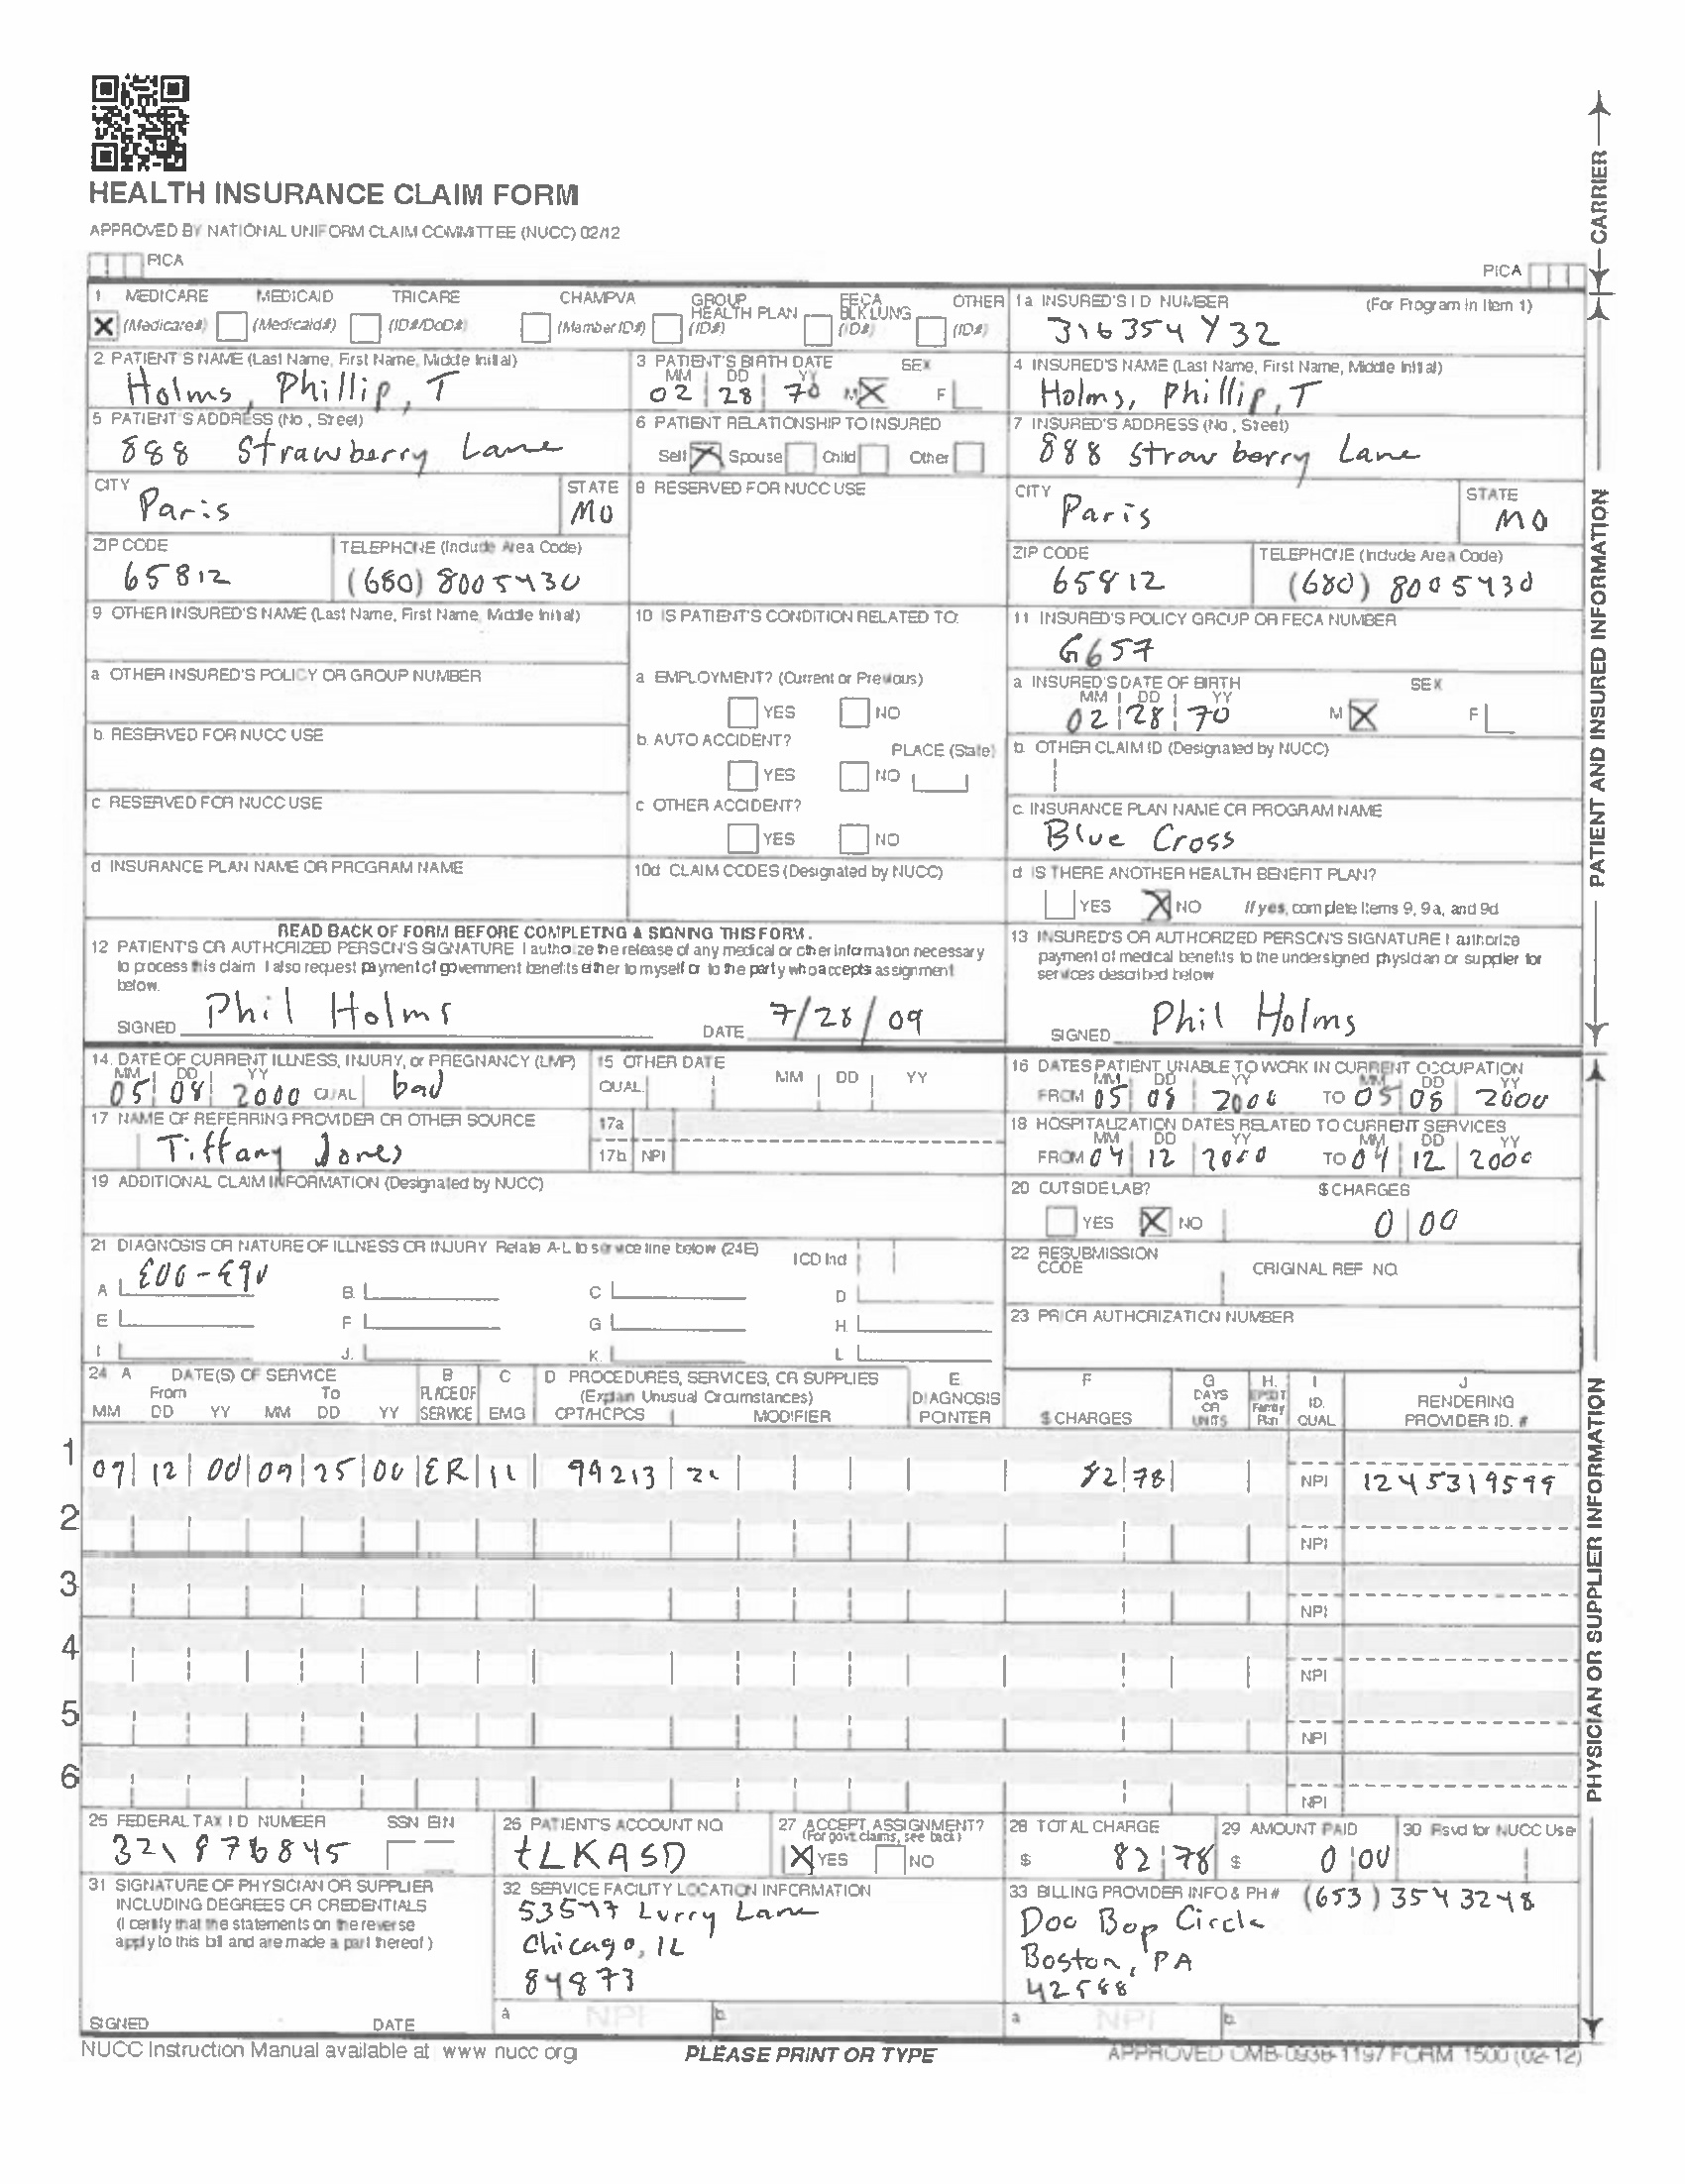 HEALTH INSURANCE CLAIM FORM
APPROVED BY NATIONAL UNIFORM CLAIM COMMITTEE (NUCC) 02/12
PICA
PICA
1 MEDICARE MEDICAID TRICARE CHAMPVA GROUP HEALTH PLAN FECA BLK LUNG OTHER
(Medicare#) (Medicaid#) (ID#/DoD#) (Member ID#) (ID#) (ID#) (ID#)
1a INSURED'S I D NUMBER (For Program in Item 1)
316354Y32
2 PATIENT'S NAME (Last Name, First Name, Middle Initial)
Holms, Phillip, T
3 PATIENT'S BIRTH DATE SEX
MM DD YY
02 28 70 M X F
4 INSURED'S NAME (Last Name, First Name, Middle Initial)
Holms, Phillip, T
5 PATIENT'S ADDRESS (No , Street)
888 Strawberry Lane
6 PATIENT RELATIONSHIP TO INSURED
Self X Spouse Child Other
7 INSURED'S ADDRESS (No , Street)
888 Strawberry Lane
CITY STATE
Paris MO
8 RESERVED FOR NUCC USE
CITY STATE
Paris MO
ZIP CODE TELEPHONE (Include Area Code)
65812 (680) 8005430
ZIP CODE TELEPHONE (Include Area Code)
65812 (680) 8005430
9 OTHER INSURED'S NAME (Last Name, First Name, Middle Initial)
10 IS PATIENT'S CONDITION RELATED TO:
11 INSURED'S POLICY GROUP OR FECA NUMBER
G657
a OTHER INSURED'S POLICY OR GROUP NUMBER
a EMPLOYMENT? (Current or Previous)
YES NO
a INSURED'S DATE OF BIRTH SEX
MM DD YY
02 28 70 M X F
b. RESERVED FOR NUCC USE
b. AUTO ACCIDENT? PLACE (State)
YES NO
b. OTHER CLAIM ID (Designated by NUCC)
c RESERVED FOR NUCC USE
c OTHER ACCIDENT?
YES NO
c. INSURANCE PLAN NAME OR PROGRAM NAME
Blue Cross
d INSURANCE PLAN NAME OR PROGRAM NAME
10d CLAIM CODES (Designated by NUCC)
d IS THERE ANOTHER HEALTH BENEFIT PLAN?
YES X NO If yes, complete items 9, 9a, and 9d
READ BACK OF FORM BEFORE COMPLETING & SIGNING THIS FORM.
12 PATIENT'S OR AUTHORIZED PERSON'S SIGNATURE I authorize the release of any medical or other information necessary
to process this claim I also request payment of government benefits either to myself or to the party who accepts assignment
below.
SIGNED Phil Holms DATE 7/28/09
13 INSURED'S OR AUTHORIZED PERSON'S SIGNATURE I authorize
payment of medical benefits to the undersigned physician or supplier for
services described below
SIGNED Phil Holms
14. DATE OF CURRENT ILLNESS, INJURY, or PREGNANCY (LMP)
MM DD YY
05 08 2000 QUAL bad
15 OTHER DATE
QUAL MM DD YY
16 DATES PATIENT UNABLE TO WORK IN CURRENT OCCUPATION
MM DD YY MM DD YY
FROM 05 08 2000 TO 05 08 2000
17 NAME OF REFERRING PROVIDER OR OTHER SOURCE
Tiffany Jones
17a
17b NPI
18 HOSPITALIZATION DATES RELATED TO CURRENT SERVICES
MM DD YY MM DD YY
FROM 04 12 2000 TO 04 12 2000
19 ADDITIONAL CLAIM INFORMATION (Designated by NUCC)
20 OUTSIDE LAB? $ CHARGES
YES X NO 0 00
21 DIAGNOSIS OR NATURE OF ILLNESS OR INJURY Relate A-L to service line below (24E) ICD Ind
A E00-E90 B. C D
E F G H.
I. J. K. L
22 RESUBMISSION CODE ORIGINAL REF NO.
23 PRIOR AUTHORIZATION NUMBER
24 A DATE(S) OF SERVICE B C D PROCEDURES, SERVICES, OR SUPPLIES E. F G H. I J
From To PLACE OF (Explain Unusual Circumstances) DIAGNOSIS DAYS OR UNITS EPSDT Family Plan ID. RENDERING
MM DD YY MM DD YY SERVICE EMG CPT/HCPCS MODIFIER POINTER $ CHARGES QUAL PROVIDER ID. #
1 07 12 00 09 25 00 ER 11 99213 82 78 NPI 1245319599
2 NPI
3 NPI
4 NPI
5 NPI
6 NPI
25 FEDERAL TAX I D NUMBER SSN EIN
321876845
26 PATIENT'S ACCOUNT NO.
tLKASD
27 ACCEPT ASSIGNMENT?
(For govt. claims, see back)
X YES NO
28 TOTAL CHARGE
$ 82 78
29 AMOUNT PAID
$ 0 00
30 Rsvd for NUCC Use
31 SIGNATURE OF PHYSICIAN OR SUPPLIER
INCLUDING DEGREES OR CREDENTIALS
(I certify that the statements on the reverse
apply to this bill and are made a part thereof )
SIGNED DATE
32 SERVICE FACILITY LOCATION INFORMATION
Lurry Lane
Chicago, IL
84873
a NPI b.
33 BILLING PROVIDER INFO & PH # (653) 3543248
Doo Bop Circle
Boston, PA
42568
a NPI b.
NUCC Instruction Manual available at www nucc org
PLEASE PRINT OR TYPE
APPROVED OMB-0938-1197 FORM 1500 (02-12)
CARRIER
PATIENT AND INSURED INFORMATION
PHYSICIAN OR SUPPLIER INFORMATION